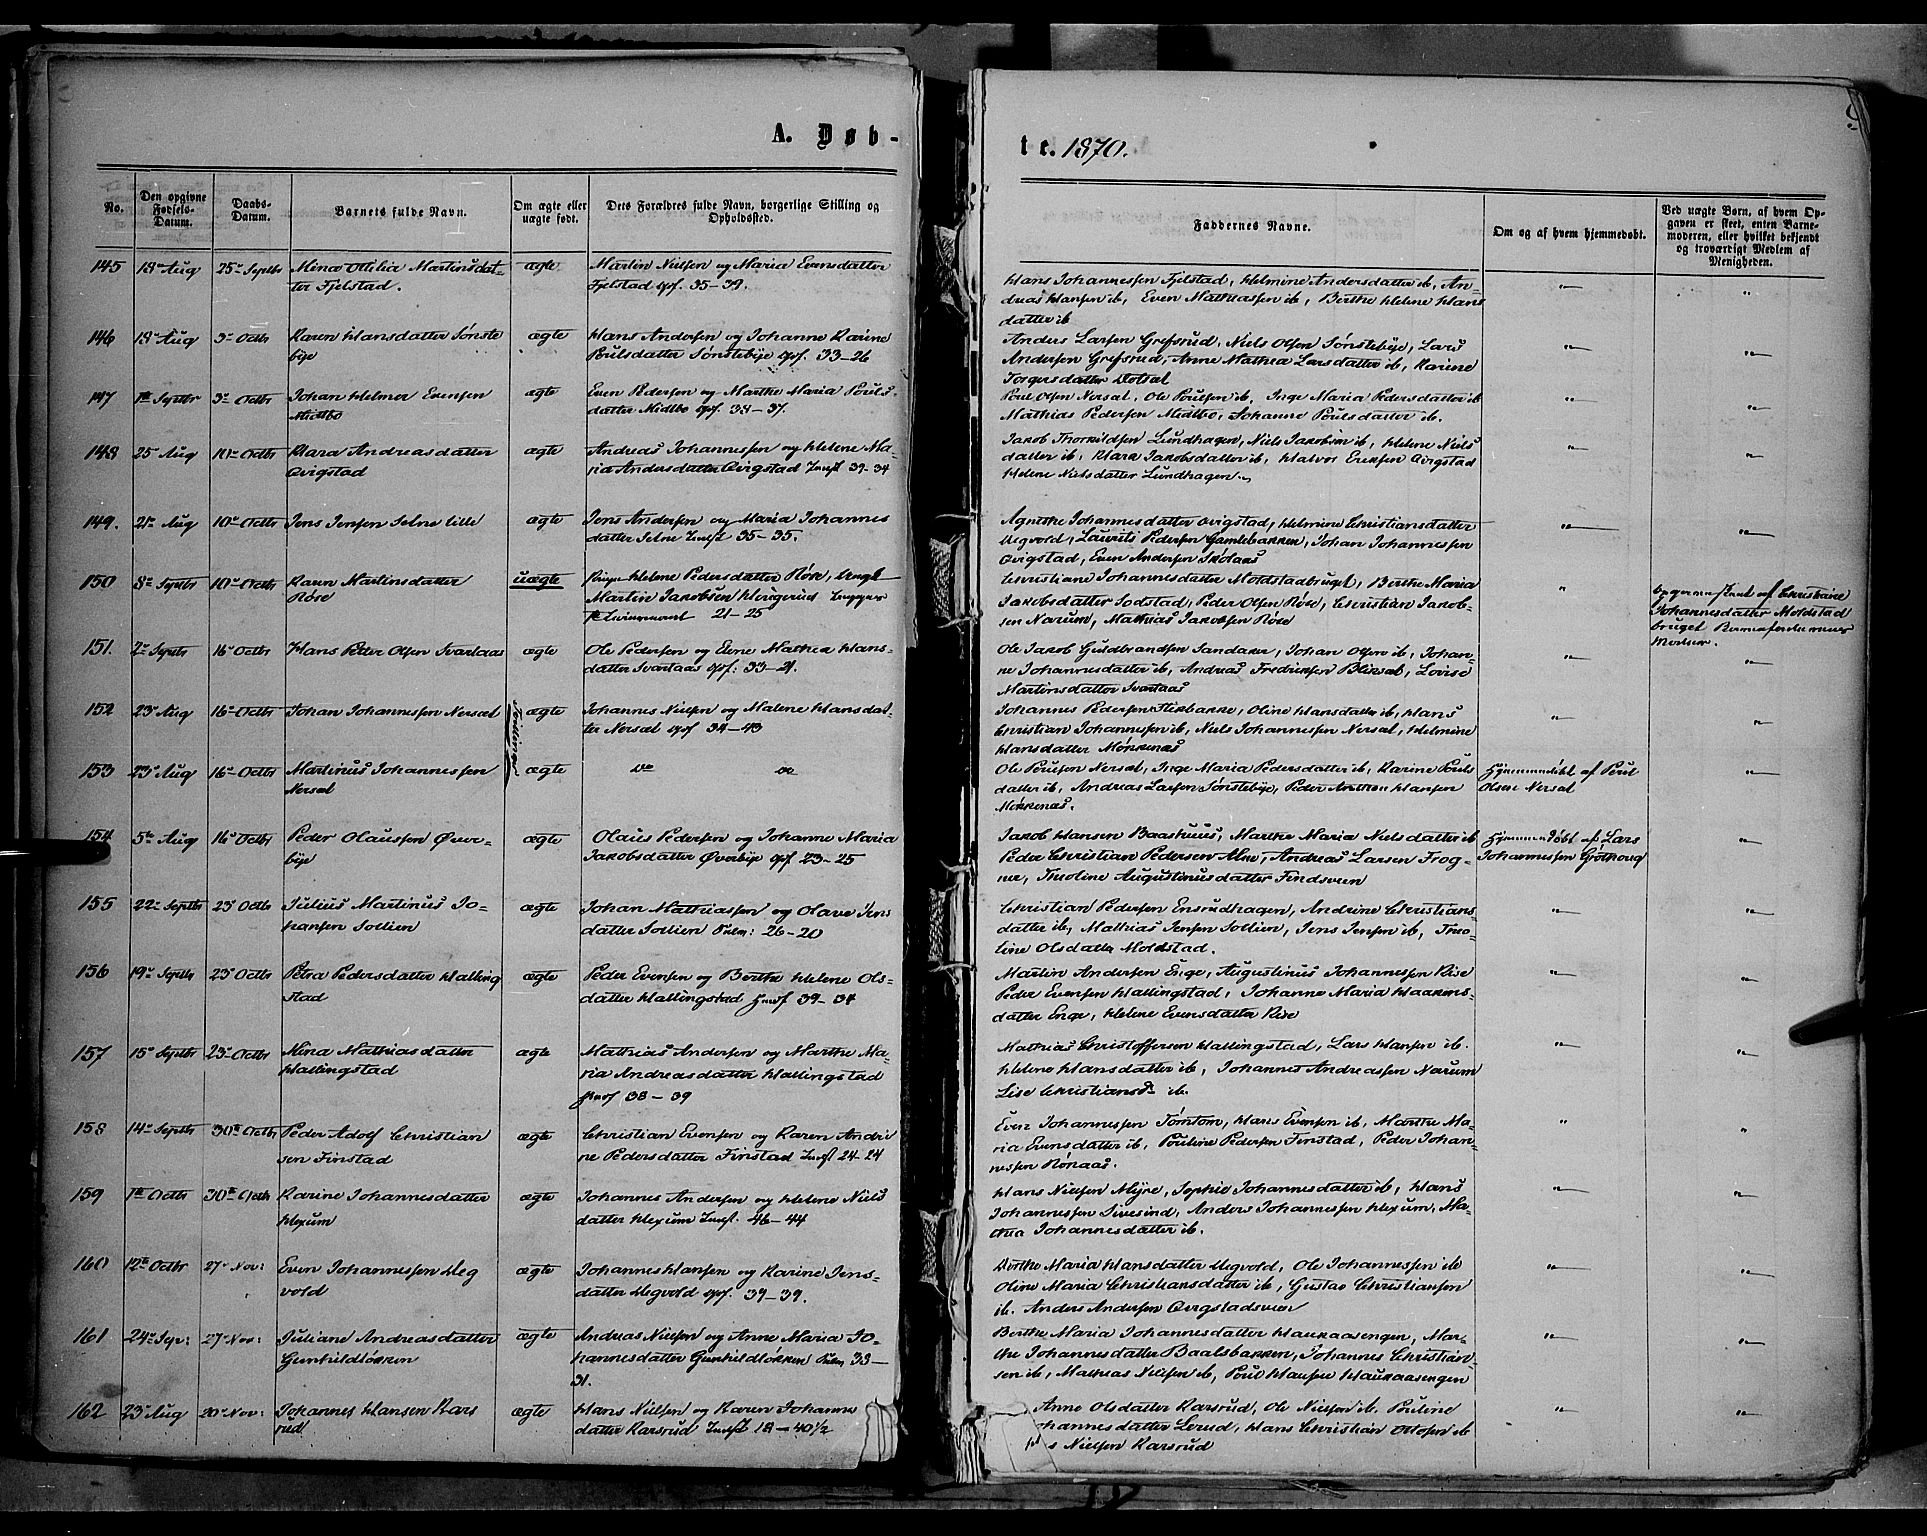 A. Døb-
te. 1870.
No.
Den opgivne Fødsels-Datum.
Daabs-Datum.
Barnets fulde Navn.
Om ægte eller uægte født.
Dets Forældres fulde Navn, borgerlige Stilling og Opholdssted.
Faddernes Navne.
Om og af hvem hjemmedøbt.
Ved uægte Børn, af hvem Op-
gaven er skeet, enten Barne-
moderen, eller hvilket bekjendt
og troværdigt Medlem af
Menigheden.
145 18de Aug 25de Septbr Mina Otilia Martinsdat- ægte Martin Nielsen og Maria Evensdatter
ter Fjelstad. Fjelstad gpf. 35-39.
Hans Johannessen Fjelstad, Helmine Andersdatter ib, An-
dreas Hansen ib, Even Mathiassen ib, Berthe Helene Hans
datter ib
146 18 Aug 3de Octbr Karen Hansdatter Sønste ægte Hans Andersen og Johanne Karine
bye Poulsdatter Sønstebye gpf. 33-26
Anders Larsen Grefsrud, Niels Olsen Sønstebye, Lars
Andersen Grefsrud, Anne Mathea Larsdatter ib, Karine
Torgersdatter
147 1ste Septbr 3de Octbr Johan Helmer Evensen ægte Even Pedersen og Marthe Maria Pouls-
Midtbo datter Midtbo gpf. 38-37.
Poul Olsen Nersæt, Ole Poulsen ib, Inge Maria Pedersdatter ib
Mathias Pedersen Midtbo, Johanne Poulsdatter ib.
148 25 Aug 10de Octbr Klara Andreasdatter ægte Andreas Johannessen og Helene Ma-
Qvigstad ria Andersdatter Qvigstad Inest 39-34
Jakob Thorkildsen Lundhagen, Niels Jakobsen ib, Helene Niels
datter ib, Klara Jakobsdatter ib, Halvor Eriksen Qvigstad
Helene Nielsdatter Lundhagen
149. 21de Aug 10de Octbr Jens Jensen Selne lille ægte Jens Andersen og Maria Johannes
datter Selne Inest 35-35.
Agnethe Johannesdatter Qvigstad, Helmine Christiansdatter
Hegvold, Laurits Pedersen Gamlebakken, Johan Johannessen
Qvigstad, Even Andersen Skolaas
150 8de Septbr 10de Octbr Karen Martinsdatter uægte Pige Helene Pedersdatter Røse, Ungk
Røse Martin Jakobsen Haugerud
21-25
Christiane Johannesdatter Moldstadbruget, Berthe Maria
Jakobsdatter Sodstad, Peder Olsen Røse, Christian Jakob-
sen Narum, Mathias Jakobsen Røse
Opgaven skeet af Christiane
Johannesdatter Moldstad
bruget
Moder.
151. 2de Septbr 16de Octbr Hans Peder Olsen Svartaas ægte Ole Pedersen og Elene Mathea Hans-
datter Svartaas gpf. 33-21.
Ole Jakob Guldbrandsen Sandaker, Johan Olsen ib, Johan-
ne Johannesdatter ib, Andreas Fredriksen Bliksæt, Lovise
Martinsdatter Svartaas
152 23de Aug 16de Octbr Johan Johannessen Nersæt Tvillinger ægte Johannes Nielsen og Malene Hansdat-
ter Nersæt gpf 34-43
Johannes Pedersen Flikbakke, Oline Hansdatter ib, Hans
Christian Johannessen ib, Niels Johannessen Nersæt, Helmine
Hansdatter Mønkenæs
153 23de Aug 16de Octbr Martinus Johannessen ægte do do
Nersæt
Ole Poulsen Nersæt, Inge Maria Pedersdatter ib, Karine Pouls
datter ib, Andreas Larsen Sønstebye, Peder Hansen
Mokkenæs.
Hjemmedøbt af Poul
Olsen Nersæt
154 5te Aug 16de Octbr Peder Olaussen Øver- ægte Olaus Pedersen og Johanne Maria
bye Jakobsdatter Øverbye gpf. 23-25
Jakob Hansen Baashuus, Marthe Maria Nielsdatter ib
Peder Christian Pedersen Alm, Andreas Larsen Frog-
ner, Theoline Augustinusdatter Findsveen
Hjemmedøbt af Lars
Johannessen Grøthoug
155 22de Septbr 23de Octbr Julius Martinus Jo- ægte Johan Mathiassen og Olave Jens
hansen Sollien datter Sollien Pulm: 26-20
Christian Pedersen Ensrudhagen, Andrine Christians-
datter ib, Mathias Jensen Sollien, Jens Jensen ib, Theo-
line Olsdatter Moldstad.
156 19de Septbr 23de Octbr Petra Pedersdatter Halling ægte Peder Evensen og Berthe Helene Ols-
stad datter Hallingstad Hmf 39-34
Martin Andersen Enge, Augustinus Johannessen Rise
Peder Evensen Hallingstad, Johanne Maria Haakens-
datter Enge, Helene Evensdatter Rise
157 15de Septbr 23de Octbr Mina Mathiasdatter ægte Mathias Andersen og Marthe Ma-
Hallingstad ria Andreasdatter Hallingstad
38-39
Mathias Christoffersen Hallingstad, Lars Hansen ib.
Helene Hansdatter ib, Johannes Andreassen Narum
Lise Christiansdr ib.
158 14de Septbr 30te Octbr Peder Adolf Christian ægte Christian Evensen og Karen Andri
sen Finstad ne Pedersdatter Finstad Inest 24-24
Even Johannessen Tømtom, Hans Evensen ib, Marthe Ma-
ria Evensdatter ib, Pouline Pedersen Finstad, Peder Johan-
nessen Rønaas.
159 1ste Octbr 30te Octbr Karine Johannesdatter ægte Johannes Andersen og Helene Niels
Hexum datter Hexum Inest. 46-44
Hans Nielsen Myre, Sophie Johannesdatter ib, Hans
Johannessen Sivesind, Anders Johannessen Hexum, Ma-
thea Johannesdatter ib.
160 12te Octbr 27de Nov: Even Johannessen Heg ægte Johannes Hansen og Karine Jens-
vold datter Hegvold gpf. 39-39.
Berthe Maria Hansdatter Hegvold, Ole Johannessen ib
Oline Maria Christiansdatter ib, Gustav Christiansen
ib. Anders Andersen Qvigstadsveen
161 24de Sep: 27de Nov: Juliane Andreasdatter ægte Andreas Nielsen og Anne Maria Jo-
Gunhildløkken hannesdatter Gunhildløkken Pulm. 33-
31.
Berthe Maria Johannesdatter Haukaasengen, Mar-
the Johannesdatter Baalsbakken, Johannes Christian-
sen ib, Mathias Nielsen ib, Poul Hansen Haukaasengen
162 23de Aug 20de Nov: Johannes Hansen Kars ægte Hans Nielsen og Karen Johannes
rud datter Karsrud Inest 18-40½
Anne Olsdatter Karsrud, Ole Nielsen ib. Pouline
hannesdatter Lerud, Hans Christian Ottosen ib
s Nielsen Karsrud